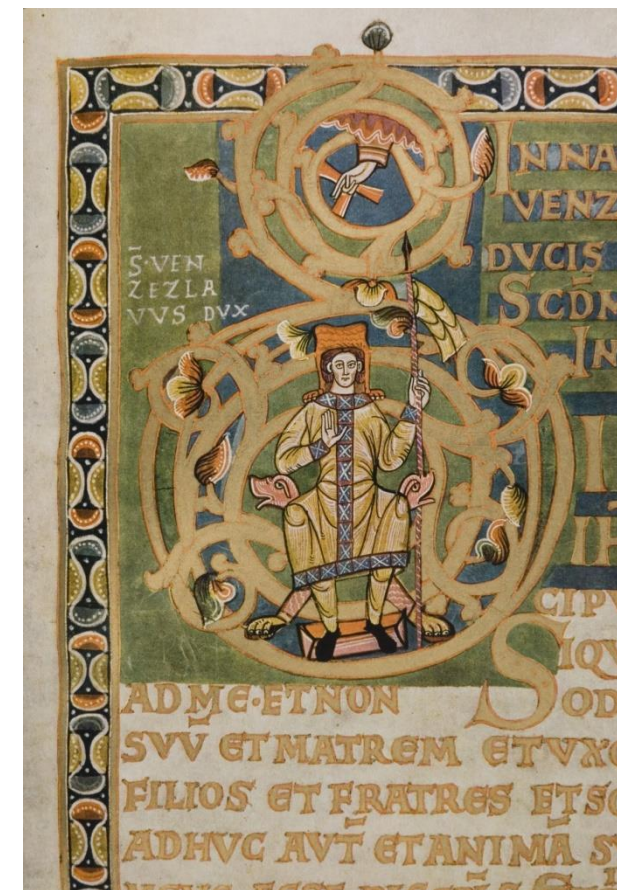 S̄·VEN
ZEZLA
VVS DVX
IN NA
VENZ
DVCIS
SCD̄N
IN
I
IH̄
CIPV
SIQV
AD ME·ET NON
OD
SVV̄ ET MATREM ET VXO
FILIOS ET FRATRES ET SO
ADHVC AVT̄ ET ANIMĀ S